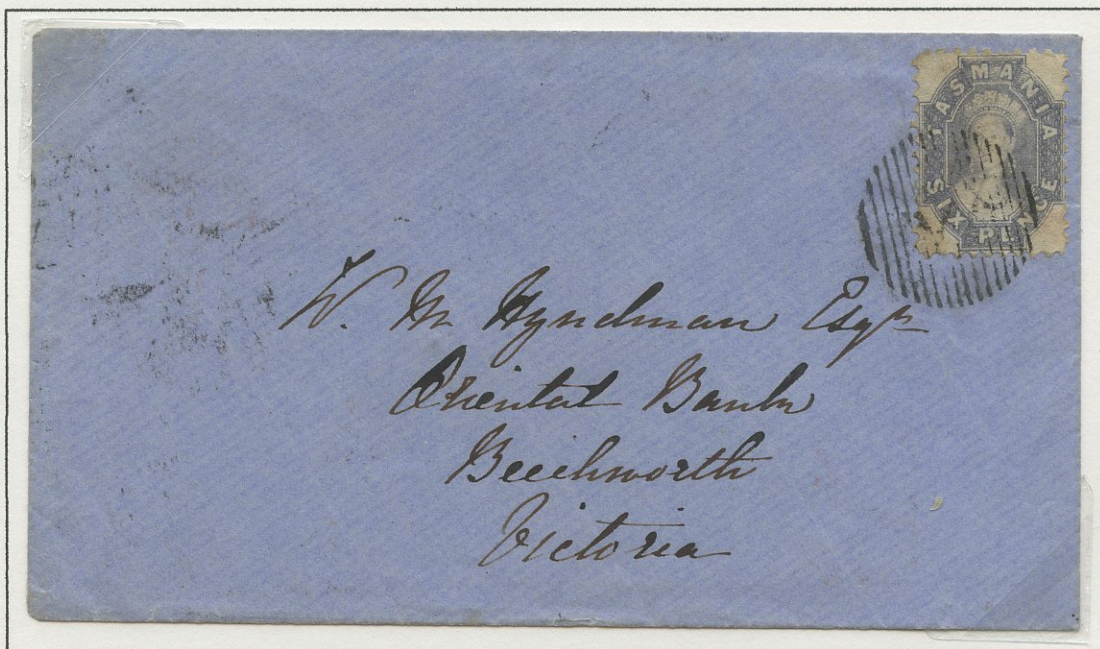 TASMANIA
SIX PENCE
W. M Hyndman Esqr
Oriental Bank
Beechworth
Victoria